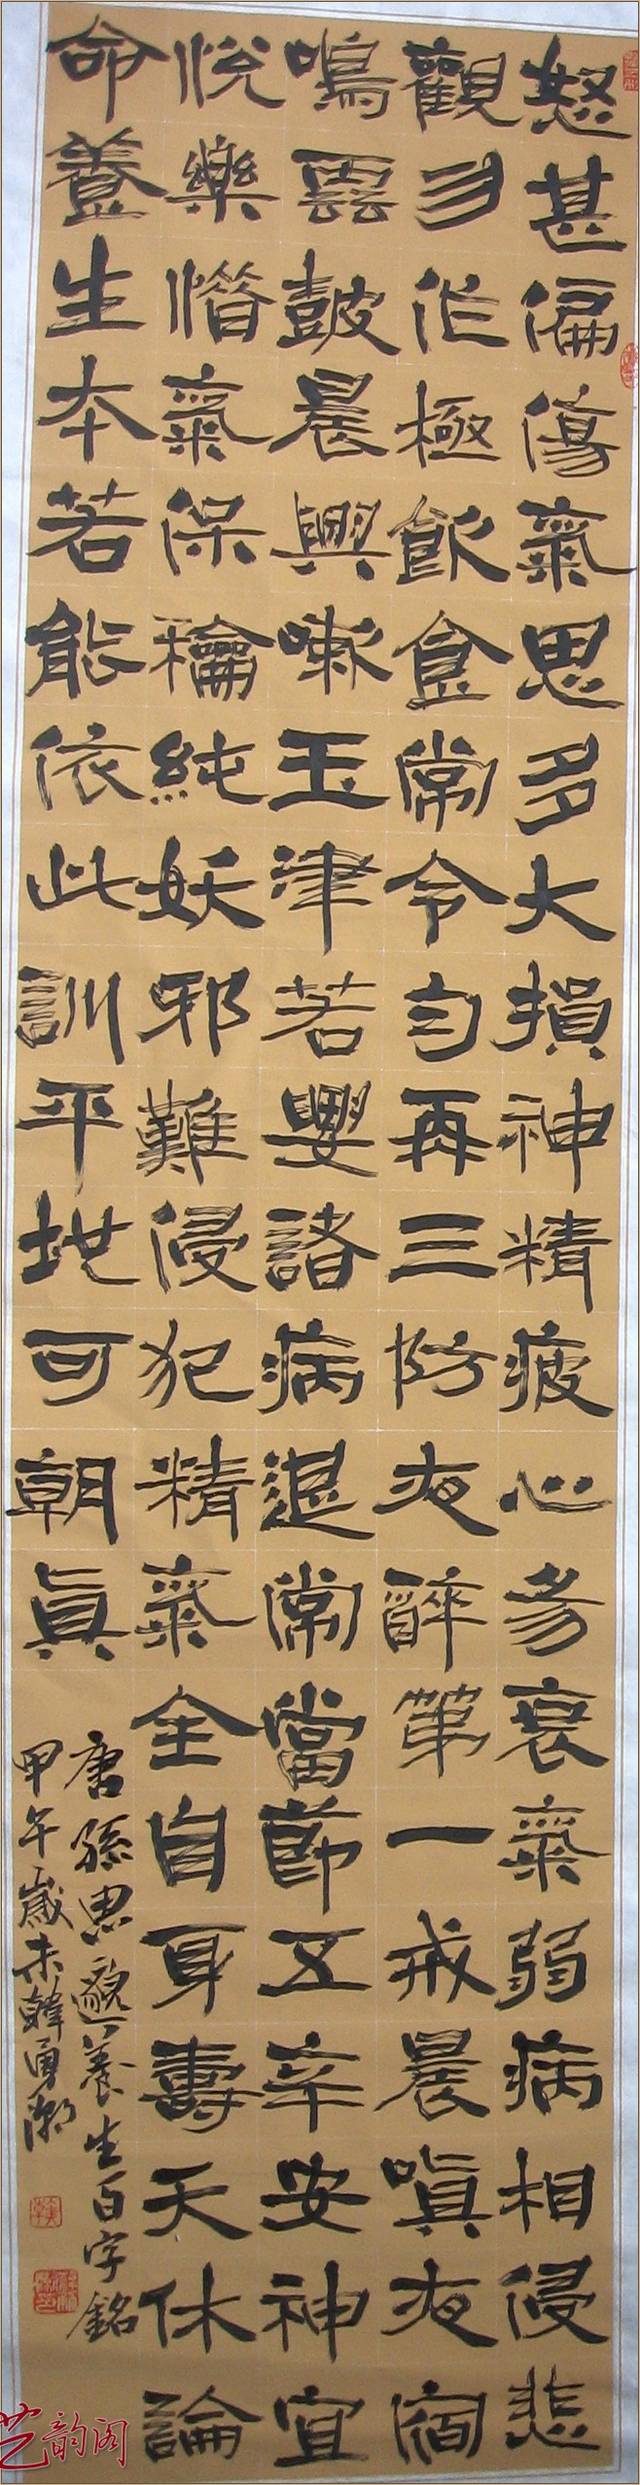 怒甚偏傷氣思多大損神精疲心易衰氣弱病相侵悲
觀勿作極飲食常令匀再三防夜醉第一戒晨嗔夜宿
鳴雲鼓晨興嗽玉津若要諸病退常當節五辛安神宜
悅樂惜氣保龢純妖邪難侵犯精氣全自身壽夭休論
命養生本若能依此訓平地可朝真
唐孫思邈養生百字銘
甲午歲末韓勇潮
艺韵阁